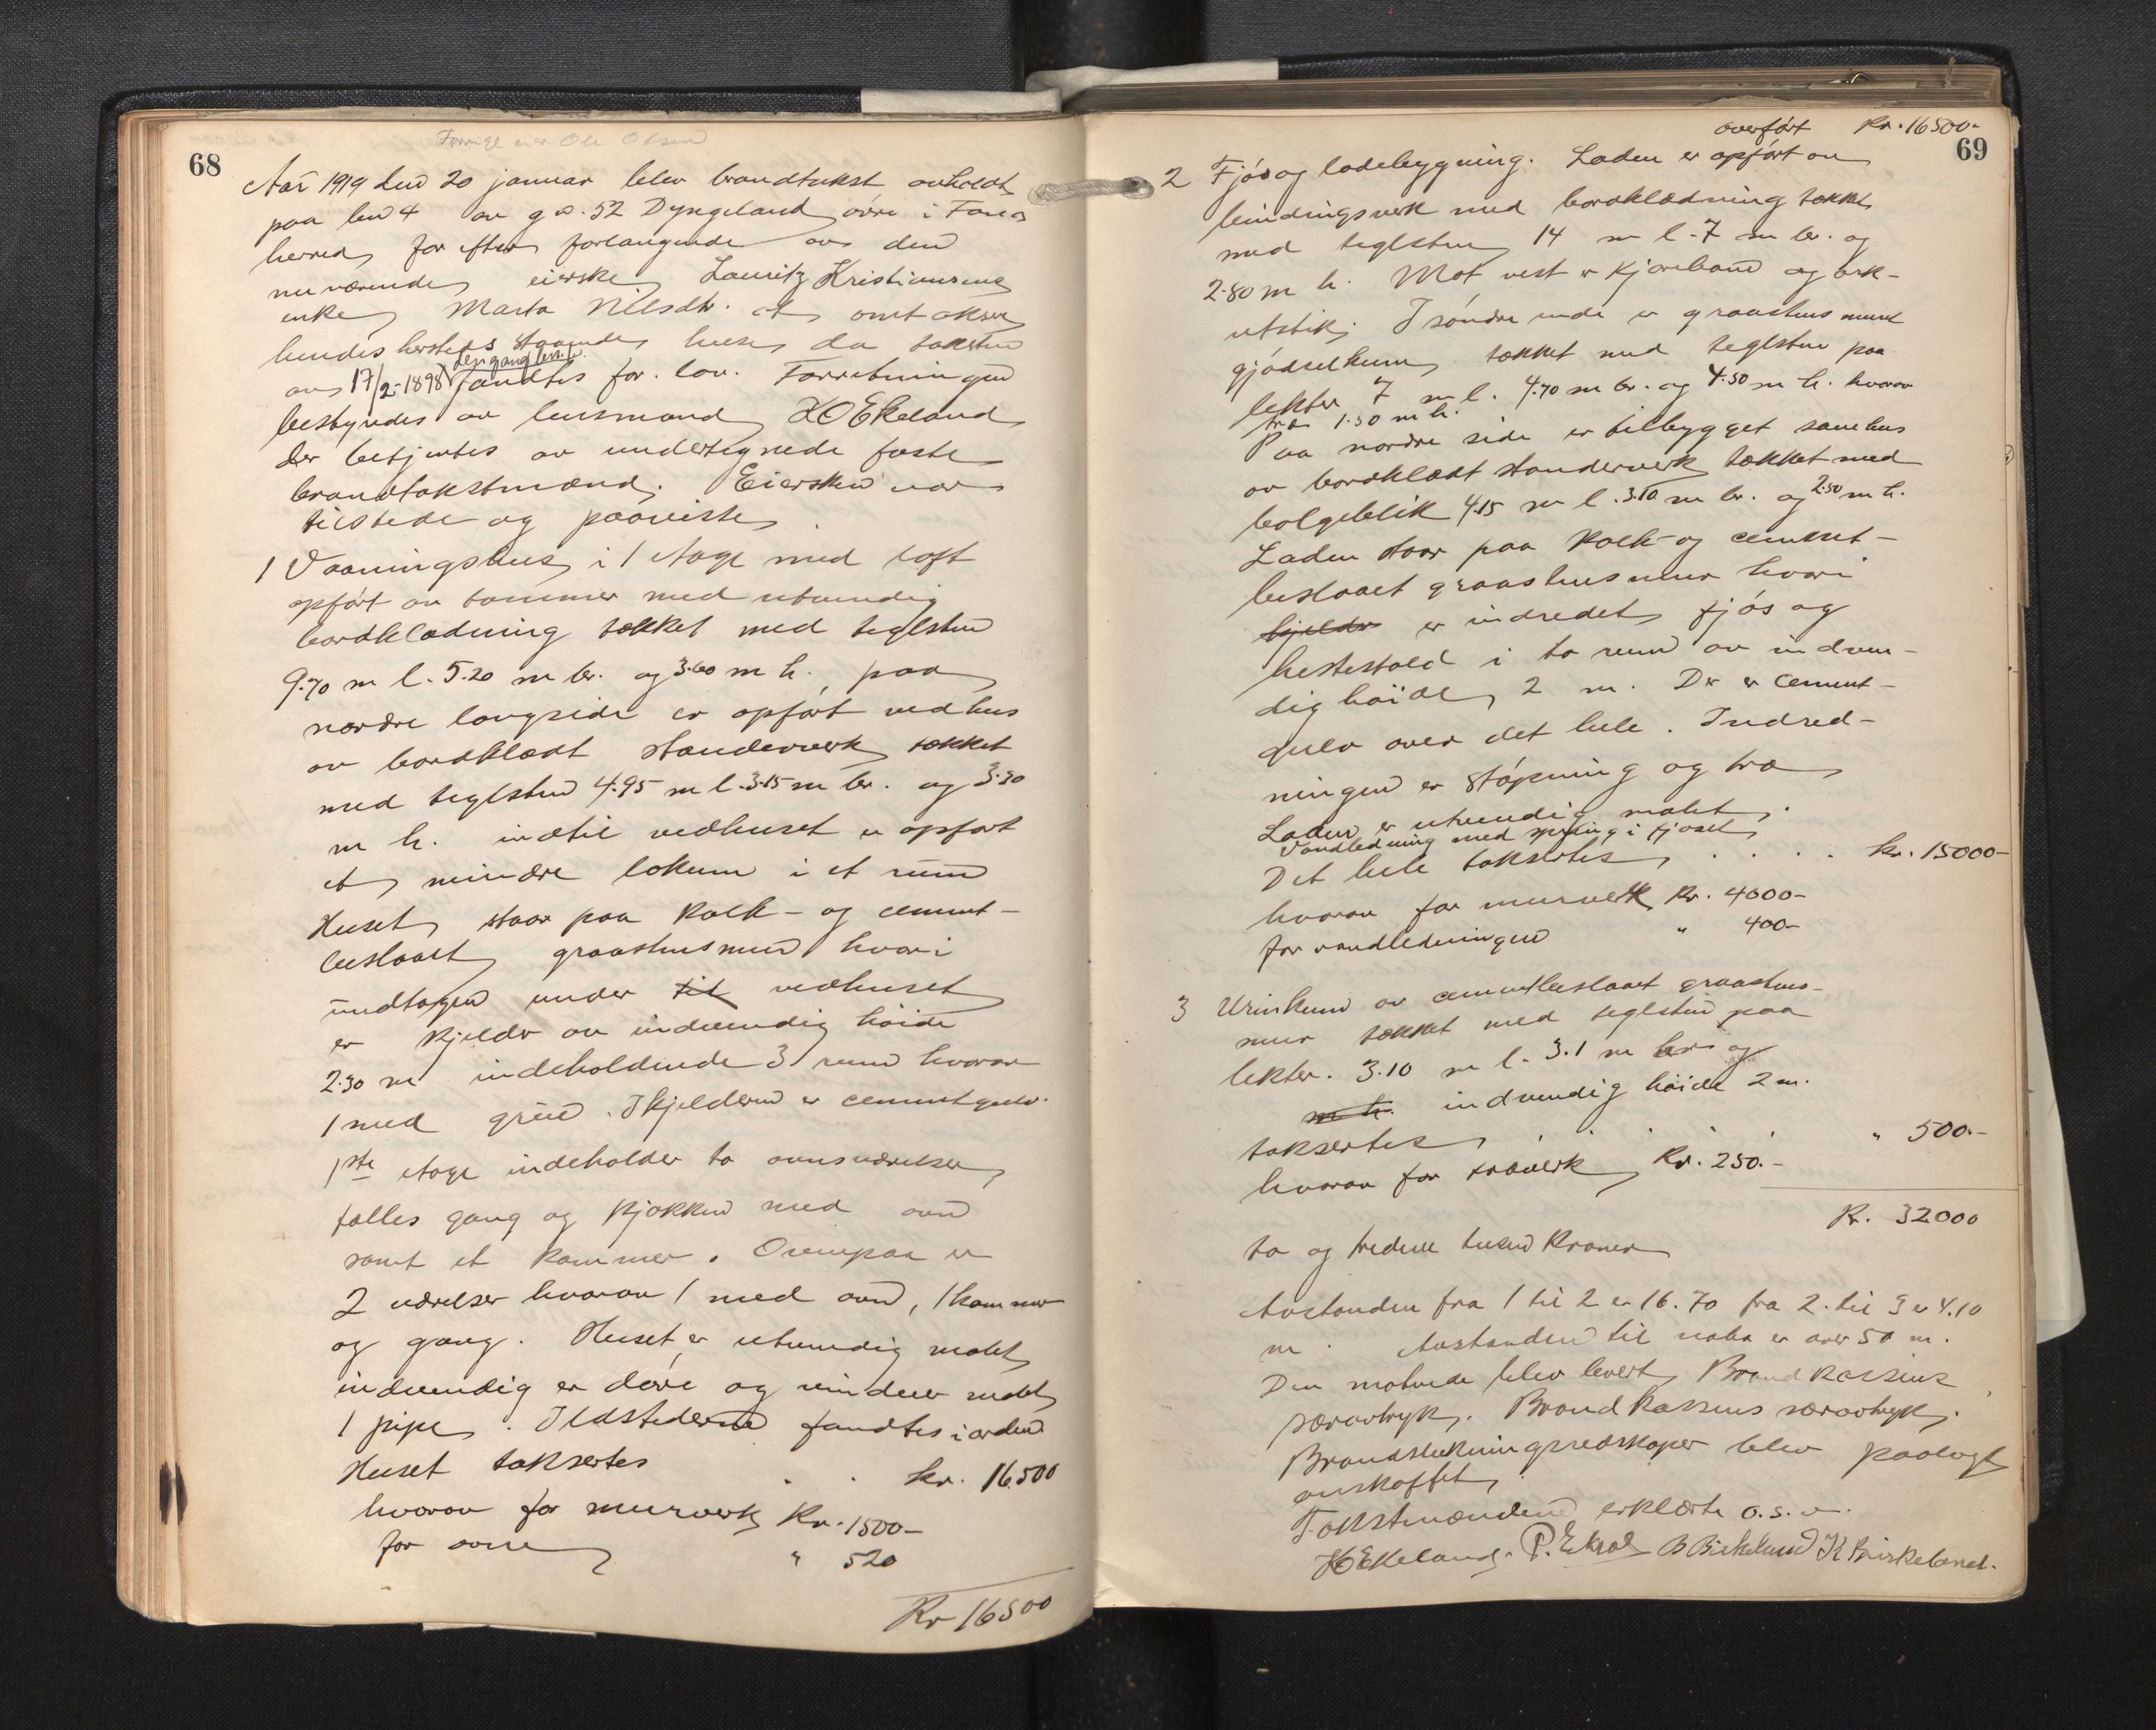 Forrige eier Ole Olsen
68
Aar 1919 den 20 januar blev brandtakst avholdt
paa bno 4 av g no. 52 Dyngeland øvre i Fana
herred, for efter forlangende av den
nuværende eierske Lauritz Kristiansens
enke Marta Nilsdtr. at omtaksere
hendes hersteds staaende huse, da taksten
av 17/2-1898 fandtes for lav. Forretningen
dengang
bestyredes av lensmand H O Ekeland
der betjentes av undertegnede faste
brandtakstmænd. Eiersken var
tilstede og paaviste.
1 Vaaningshus i 1 etage med loft
opført av tømmer med utvendig
bordklædning tækket med teglsten
9.70 m l. 5.20 m br. og 3.60 m h. paa
nordre langside er opført vedhus
av bordklædt standerverk tækket
med teglsten 4.95 m l. 3.15 m br. og 3.30
m h. indtil vedhuset er opført
et mindre lokum i et rum
Huset staar paa kalk- og cement-
beslaaet graastensmur hvori
undtagen under til vedhuset
er kjelder av indvendig høide
2.30 m indeholdende 3 rum hvorav
1 med grue. I kjelderen er cementgulv.
1ste etage indeholder to ovnsværelser,
fælles gang og kjøkken med ovn
samt et kammer. Ovenpaa er
2 værelser hvorav 1 med ovn, 1 kammer
og gang. Huset er utvendig malet
indvendig er døre og vinduer malet
1 pipe. Ildstederne fandtes i orden
Huset taksertes . . kr. 16500
hvorav for murverk Kr. 1500-
for ovne " 520
Kr 16500
overført Kr. 16500-
69
2 Fjøs og ladebygning. Laden er opført av
bindingsverk med bordklædning tækket
med teglsten 14 m l. 7 m br. og
2.80 m h. Mot vest er kjørebane og ark-
utstik. I søndre ende er graastensmuret
gjødselkum, tækket med teglsten paa
lekter 7 m l. 4.70 m br. og 4.50 m h. hvorav
træ 1.50 m h.
Paa nordre side er tilbygget sauehus
av bordklædt standerverk tækket med
bølgeblik 4.15 m l. 3.10 m br. og 2.50 m h.
Laden staar paa kalk- og cement-
beslaaet graastensmur hvori
kjelder er indredet fjøs og
hestestald i to rum av indven-
dig høide 2 m. Der er cement-
gulv over det hele. Indred-
ningen er støpning og træ
Laden er utvendig malet.
Vandledning med spring i fjøset
Det hele taksertes . . . . kr. 15000-
hvorav for murverk Kr. 4000-
for vandledningen " 400-
3 Urinkum av cementbeslaaet graastens-
mur tækket med teglsten paa
lekter. 3.10 m l. 3.1 m br. og
m h. indvendig høide 2 m.
taksertes . . . . " 500.-
hvorav for træverk Kr. 250.-
Kr. 32000
to og tredive tusen Kroner
Avstanden fra 1 til 2 er 16.70 fra 2. til 3 er 4.10
m. Avstanden til nabo er over 50 m.
Den møtende blev levert Brandkassens
særavtryk. Brandkassens særavtryk.
Brandslukningsredskaper blev paalagt
anskaffet.
Takstmændene erklærte o.s.v.
H O Ekeland. P. Ekrol B Birkeland K Birkeland.